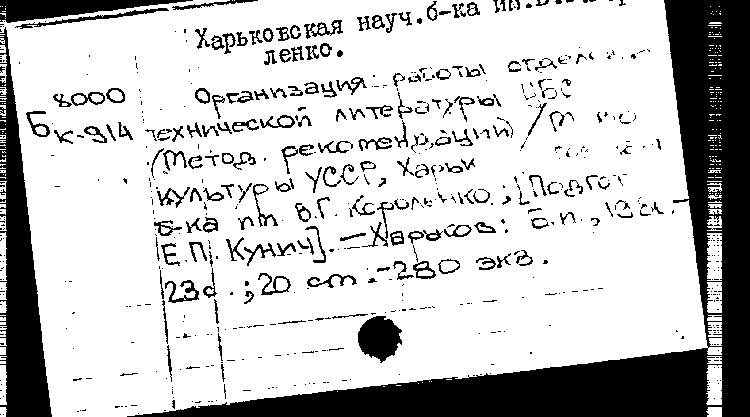 Харьковская науч.б-ка им.В.
ленко.
8000 Организация работы отделе
Б К-914 технической литературы ЦБС
(Метод. рекомендации) /
культуры УССР, Харьк
б-ка им. В.Г. Короленко; [Подгот
Е.П. Кунич]. — Харьков: Б.и.,
23с.; 20 см.-280 экз.